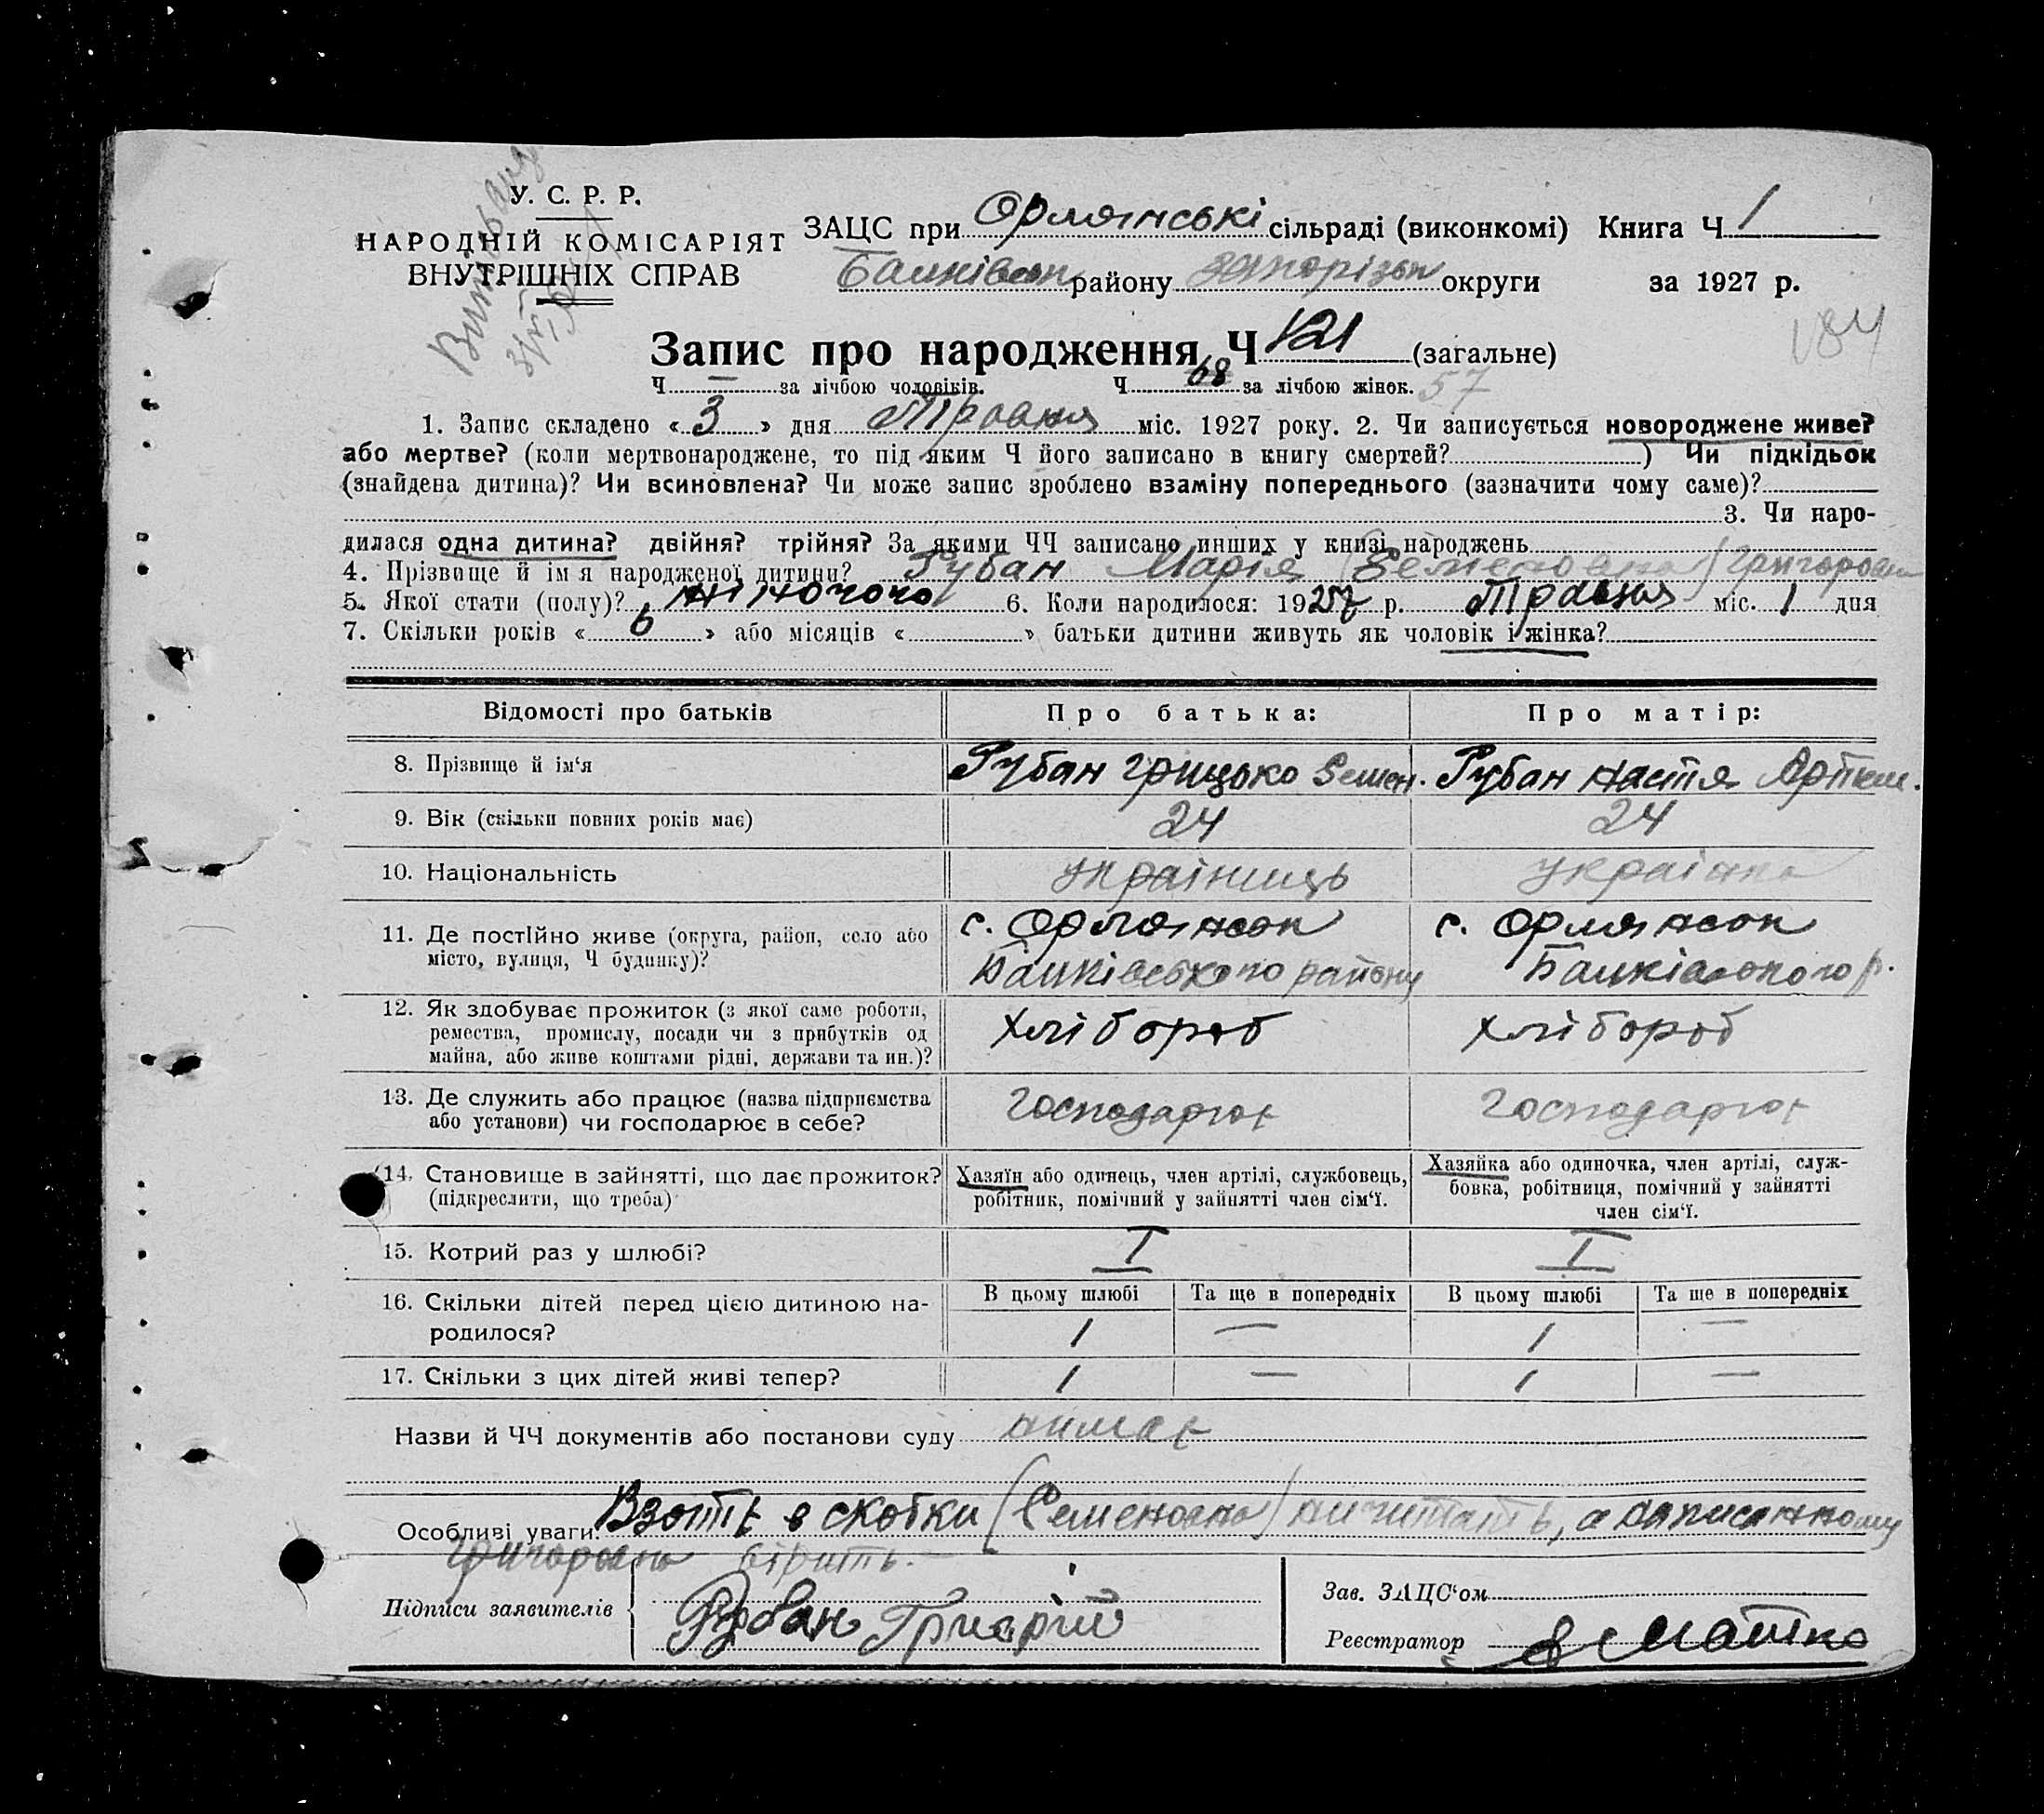 У. С. Р. Р.
НАРОДНІЙ КОМІСАРІЯТ
ВНУТРІШНІХ СПРАВ
ЗАЦС при Орлянські сільраді (виконкомі) Книга Ч 1
району Запорізьк округи за 1927 р.
184
Запис про народження Ч 121 (загальне)
Ч — за лічбою чоловіків. Ч 68 за лічбою жінок. 57
1. Запис складено « 3 » дня Травня міс. 1927 року. 2. Чи записується новороджене живе?
або мертве? (коли мертвонароджене, то під яким Ч його записано в книгу смертей? ) Чи підкідьок
(знайдена дитина)? Чи всиновлена? Чи може запис зроблено взаміну попереднього (зазначити чому саме)?
3. Чи наро-
дилася одна дитина? двійня? трійня? За якими ЧЧ записано инших у книзі народжень
4. Прізвище й ім'я народженої дитини? Рубан Марія (Семеновна) Григоровна
5. Якої стати (полу)? жіночого 6. Коли народилося: 1927 р. Травня міс. 1 дня
7. Скільки років « 6 » або місяців « » батьки дитини живуть як чоловік і жінка?
Відомості про батьків Про батька: Про матір:
8. Прізвище й ім'я Рубан Грицько Семен. Рубан Настя Артем.
9. Вік (скільки повних років має) 24 24
10. Національність українець українка
11. Де постійно живе (округа, район, село або місто, вулиця, Ч будинку)? с. Орлянськ с. Орлянськ
району р.
12. Як здобуває прожиток (з якої саме роботи, ремества, промислу, посади чи з прибутків од майна, або живе коштами рідні, держави та ин.)? хлібороб хлібороб
13. Де служить або працює (назва підприємства або установи) чи господарює в себе? господарює господарює
14. Становище в зайнятті, що дає прожиток? (підкреслити, що треба) Хазяїн або одинець, член артілі, службовець, робітник, помічний у зайнятті член сім'ї. Хазяйка або одиночка, член артілі, служ-бовка, робітниця, помічний у зайнятті член сім'ї.
15. Котрий раз у шлюбі? I I
16. Скільки дітей перед цією дитиною на-родилося? В цьому шлюбі Та ще в попередніх В цьому шлюбі Та ще в попередніх
1 — 1 —
17. Скільки з цих дітей живі тепер? 1 — 1 —
Назви й ЧЧ документів або постанови суду нимає
Особливі уваги: Взоті в скобки (Семеновна) ничитать, а написанному
Григоровна вірить.
Підписи заявителів Рубан Григрій
Зав. ЗАЦС'ом
Реєстратор